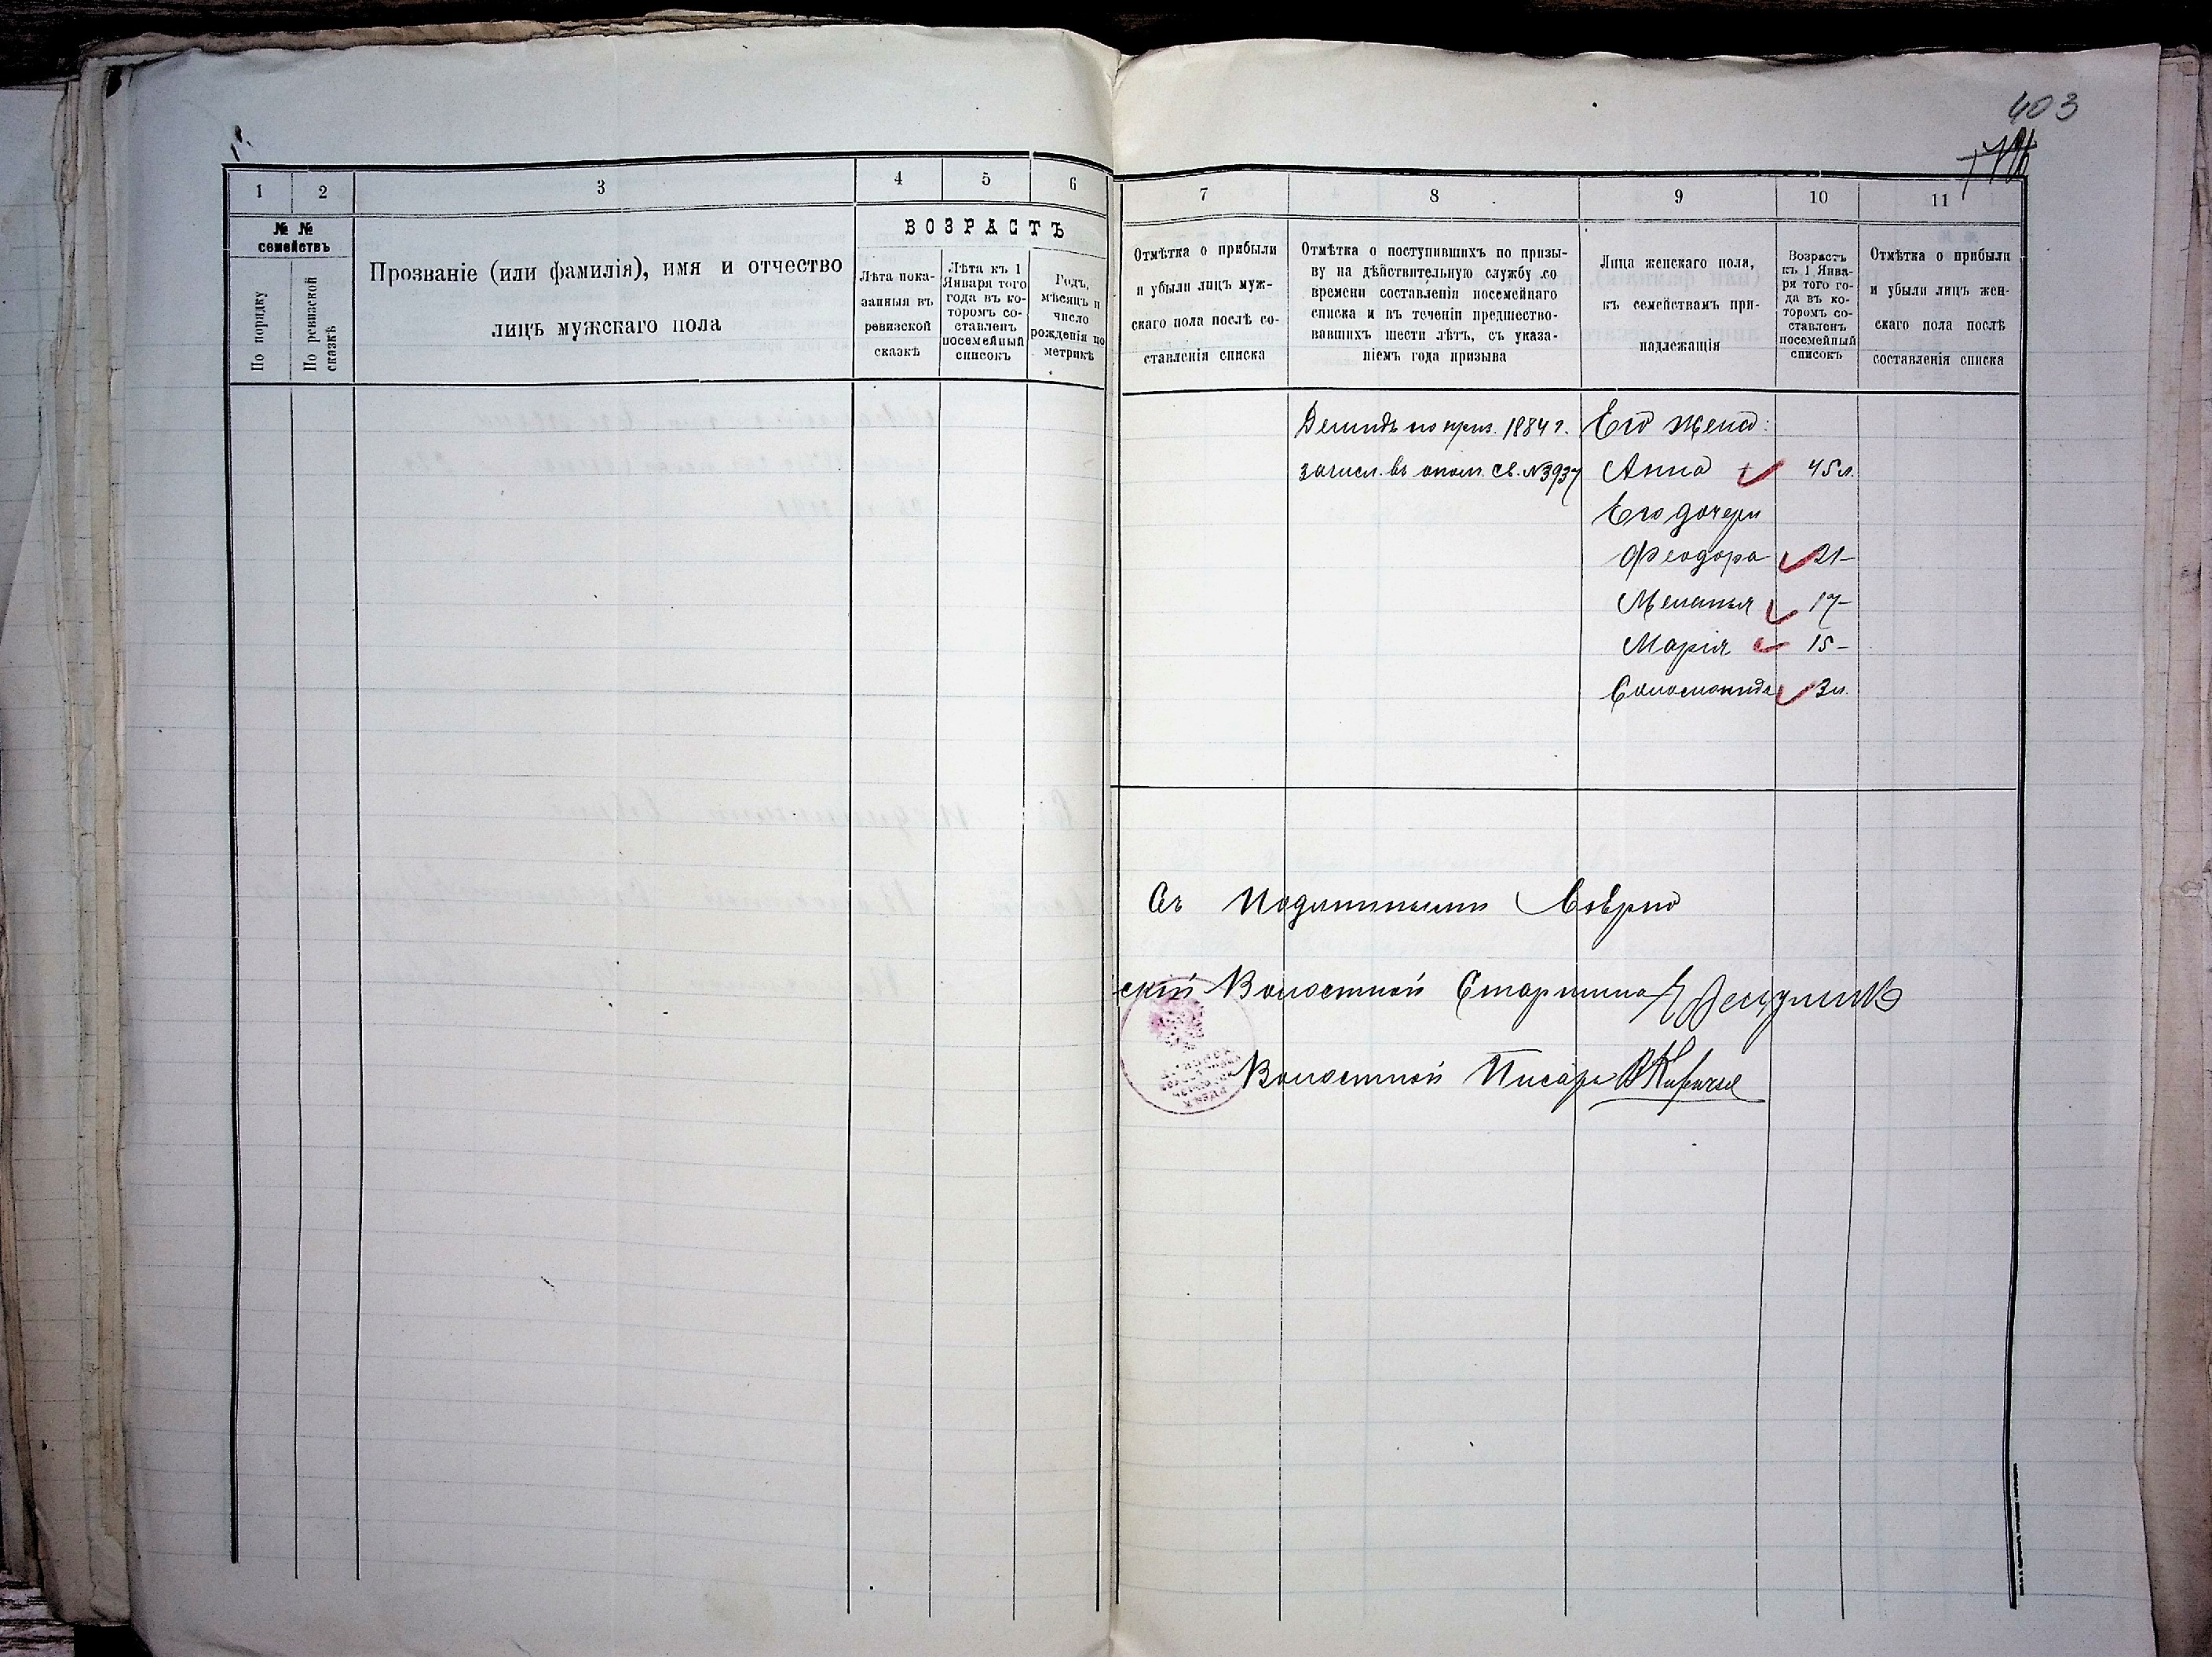 403
1 2 3 4 5 6
№ № семействъ
По порядку
По ревизской сказкѣ
Прозваніе (или фамилія), имя и отчество
лицъ мужскаго пола
ВОЗРАСТЪ
Лѣта пока-
занныя въ
ревизской
сказкѣ
Лѣта къ 1
Января того
года въ ко-
торомъ со-
ставленъ
посемейный
списокъ
Годъ,
мѣсяцъ и
число
рожденія по
метрикѣ
7 8 9 10 11
Отмѣтка о прибыли
и убыли лицъ муж-
скаго пола послѣ со-
ставленія списка
Отмѣтка о поступившихъ по призы-
ву на дѣйствительную службу со
времени составленія посемейнаго
списка и въ теченіи предшество-
вавшихъ шести лѣтъ, съ указа-
ніемъ года призыва
Лица женскаго пола,
къ семействамъ при-
надлежащія
Возрастъ
къ 1 Янва-
ря того го-
да въ ко-
торомъ со-
ставленъ
посемейный
списокъ
Отмѣтка о прибыли
и убыли лицъ жен-
скаго пола послѣ
составленія списка
Демидъ по приз. 1884 г. Его жена:
зачисл. въ опол. св. №3937 Анна 45 л.
Его дочери
Феодора 21–
Меланья 17–
Марія 15–
Соломонида 3 л.
Съ подлиннымъ вѣрно
скій Волостной Старшина
Волостной Писарь